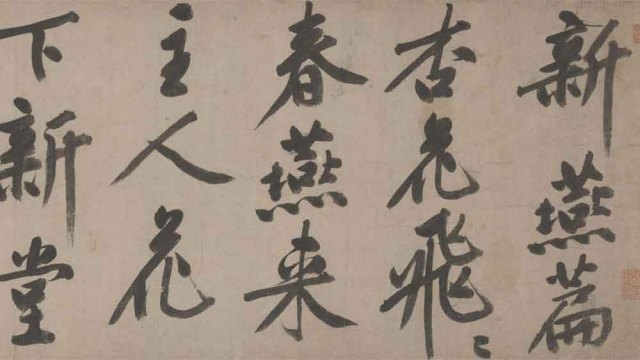 新燕篇
杏花飛〻
春燕来
主人花
下新堂